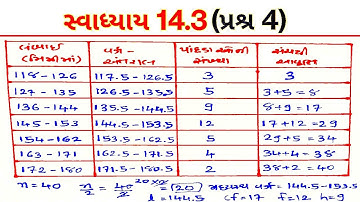 સ્વાધ્યાય 14.3 (પ્રશ્ન 4)
લંબાઈ (મિમીમાં) વર્ગ-અંતરાલ પાંદડાઓની સંખ્યા સંચયી આવૃત્તિ
118-126 117.5-126.5 3 3
127-135 126.5-135.5 5 3+5=8
136-144 135.5-144.5 9 8+9=17
145-153 144.5-153.5 12 17+12=29
154-162 153.5-162.5 5 29+5=34
163-171 162.5-171.5 4 34+4=38
172-180 171.5-180.5 2 38+2=40
n=40 n/2 = 40/2 = 20 મધ્યસ્થ વર્ગ = 144.5-153.5
l=144.5 cf=17 f=12 h=9